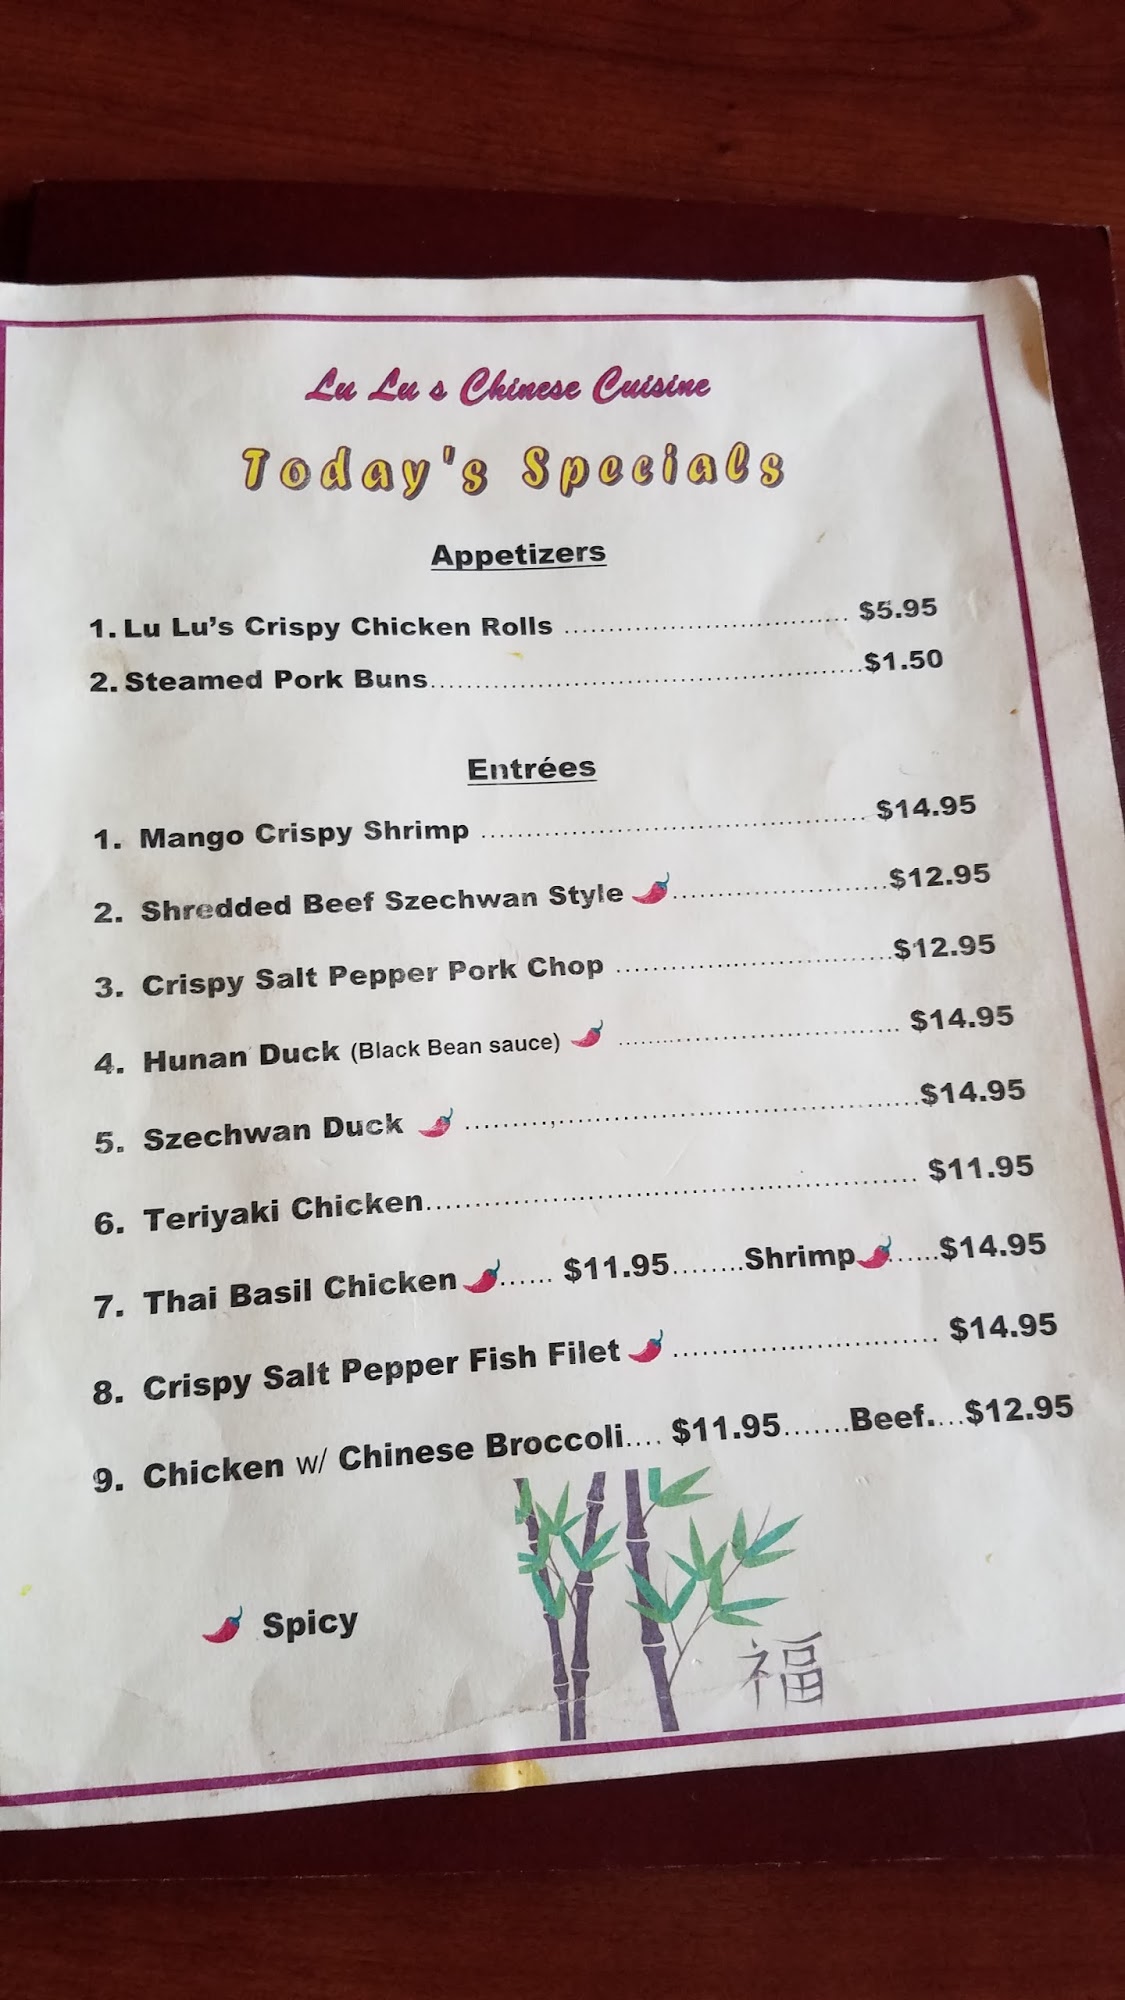 Lu Lu s Chinese Cuisine
Today's Specials
Appetizers
1. Lu Lu's Crispy Chicken Rolls ................................ $5.95
2. Steamed Pork Buns................................................$1.50
Entrées
1. Mango Crispy Shrimp .......................................... $14.95
2. Shredded Beef Szechwan Style ........................$12.95
3. Crispy Salt Pepper Pork Chop ..............................$12.95
4. Hunan Duck (Black Bean sauce) .............................. $14.95
5. Szechwan Duck ................................................$14.95
6. Teriyaki Chicken.................................................... $11.95
7. Thai Basil Chicken ...... $11.95........Shrimp......$14.95
8. Crispy Salt Pepper Fish Filet ............................ $14.95
9. Chicken w/ Chinese Broccoli.... $11.95.......Beef....$12.95
Spicy
福